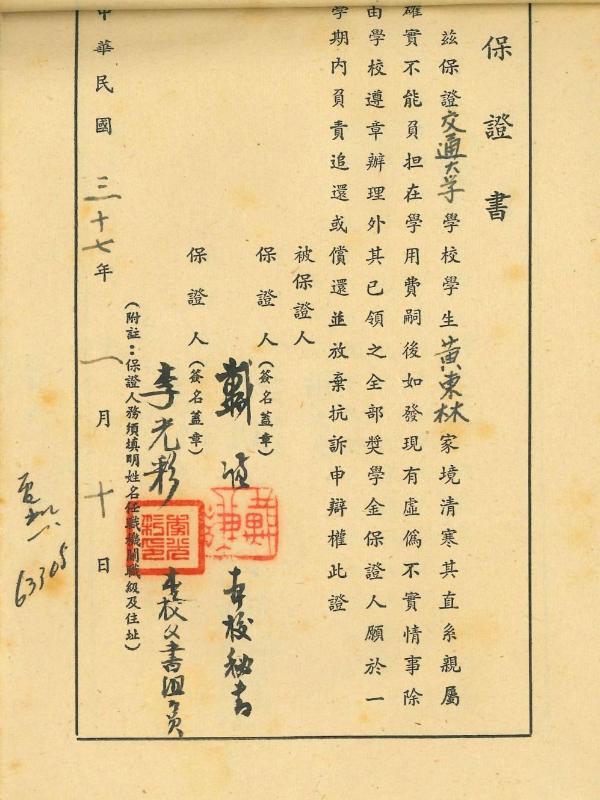 保證書
茲保證交通大学學校學生黃東林家境清寒其直系親屬
確實不能負担在學用費嗣後如發現有虛僞不實情事除
由學校遵章辦理外其已領之全部獎學金保證人願於一
學期內負責追還或償還並放棄抗訴申辯權此證
被保證人
保證人(簽名蓋章) 本校秘書
保證人(簽名蓋章) 李光彩 本校文書組組員
(附註：保證人務須填明姓名任職機關職級及住址)
中華民國三十七年一月十日
63305